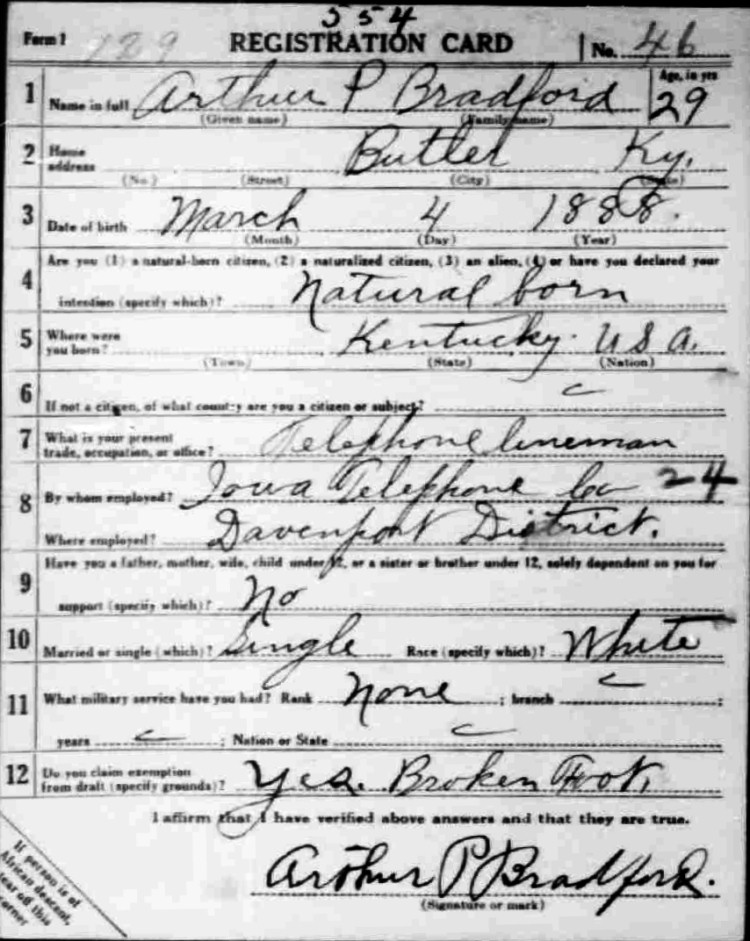 554
Form 1 129 REGISTRATION CARD No. 46
1 Name in full Arthur P Bradford Age, in yrs 29
(Given name) (Family name)
2 Home address Butler Ky.
(No.) (Street) (City) (State)
3 Date of birth March 4 1888.
(Month) (Day) (Year)
4 Are you (1) a natural-born citizen, (2) a naturalized citizen, (3) an alien, (4) or have you declared your
intention (specify which)? Natural born
5 Where were you born? Kentucky. U S A.
(Town) (State) (Nation)
6 If not a citizen, of what country are you a citizen or subject?
7 What is your present trade, occupation, or office? Telephone lineman
8 By whom employed? Iowa Telephone Co 24
Where employed? Davenport District.
9 Have you a father, mother, wife, child under 12, or a sister or brother under 12, solely dependent on you for
support (specify which)? No
10 Married or single (which)? Single Race (specify which)? White
11 What military service have you had? Rank None ; branch ;
years ; Nation or State
12 Do you claim exemption from draft (specify grounds)? Yes. Broken Foot.
I affirm that I have verified above answers and that they are true.
Arthur P Bradford.
(Signature or mark)
If person is of
African descent,
tear off this
corner